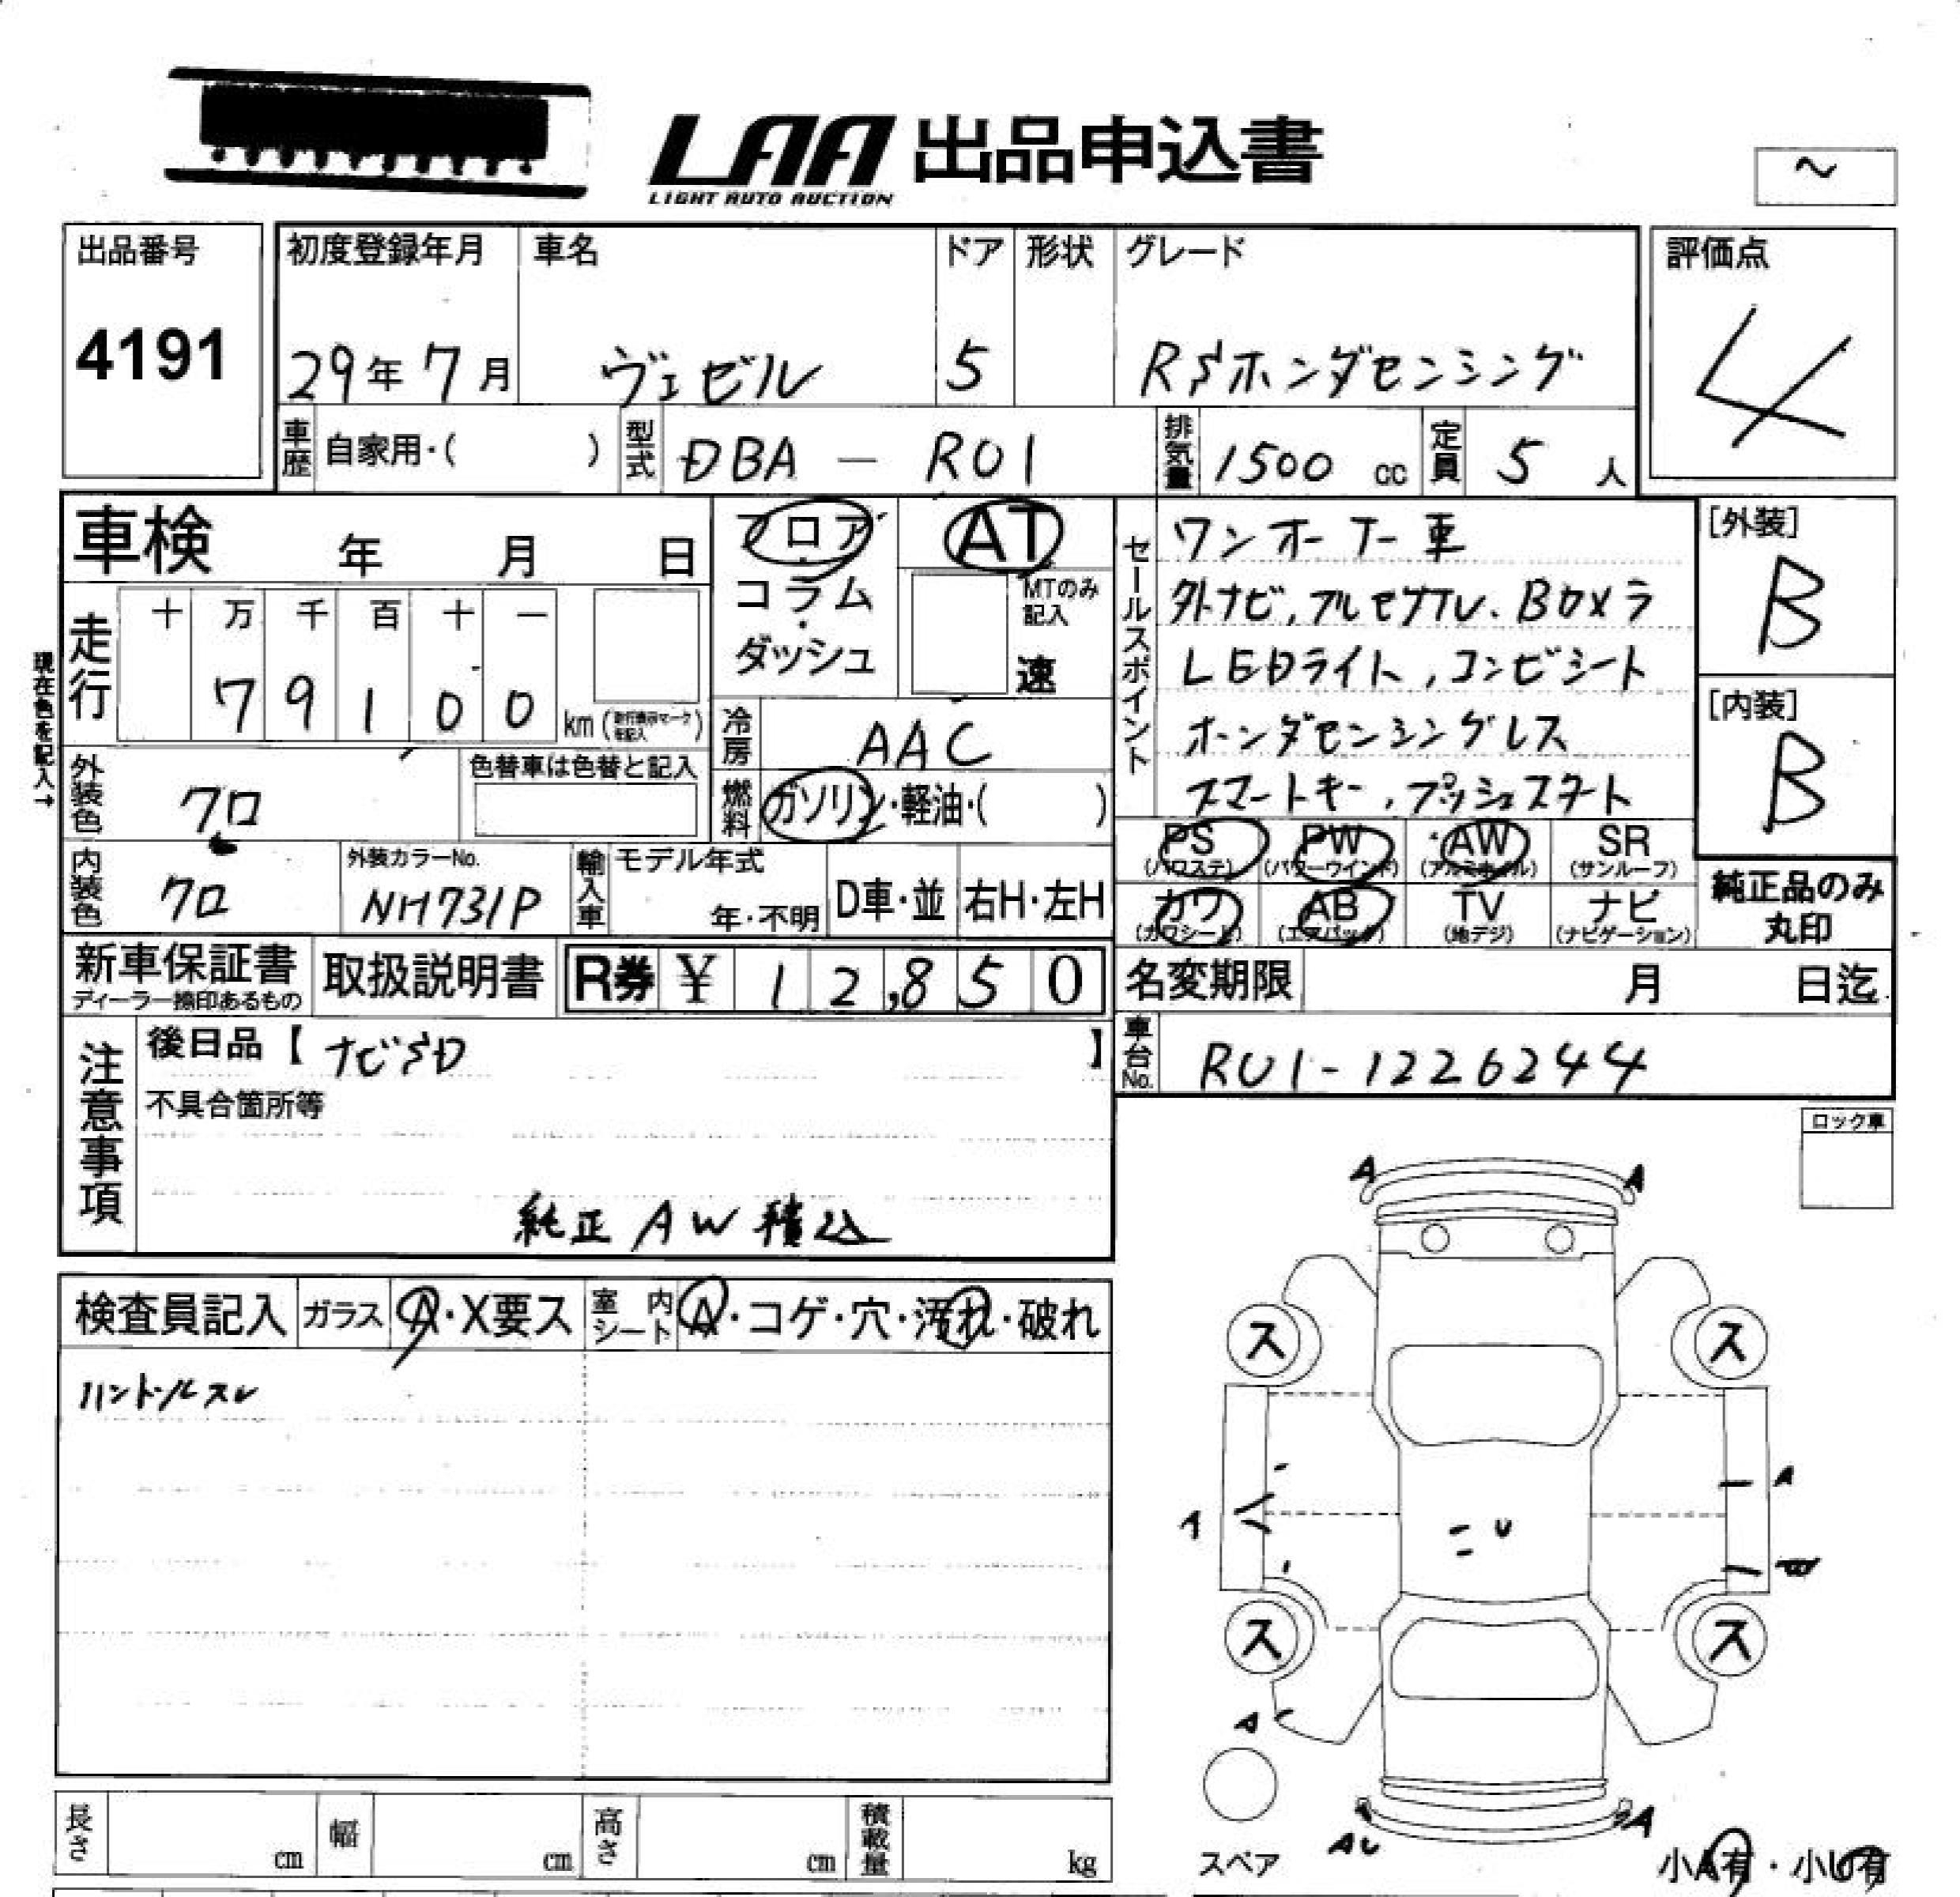 LAA 出品申込書
LIGHT AUTO AUCTION
~
出品番号
4191
初度登録年月 車名 ドア 形状 グレード
29年7月 ヴェゼル 5 RSホンダセンシング
評価点
4
車歴 自家用・( ) 型式 DBA — RU1 排気量 1500 cc 定員 5 人
車検 年 月 日
フロア・コラム・ダッシュ
AT
MTのみ記入
速
セールスポイント
ワンオーナー車
外ナビ,フルセグTV、Bカメラ
LEDライト,コンビシート
ホンダセンシングレス
スマートキー,プッシュスタート
[外装]
B
[内装]
B
現在色を記入→
走行 十 万 千 百 十 一
79100 km
冷房 AAC
燃料 ガソリン・軽油・( )
外装色 クロ
色替車は色替と記入
内装色 クロ
外装カラーNo.
NH731P
輸入車 モデル年式
年・不明
D車・並 右H・左H
PS (パワステ) PW (パワーウインド) AW (アルミホイル) SR (サンルーフ)
カワ (カワシート) AB (エアバック) TV (地デジ) ナビ (ナビゲーション)
純正品のみ
丸印
新車保証書
ディーラー捺印あるもの
取扱説明書
R券 ¥ 12,850
名変期限 月 日迄
車台No. RU1-1226244
注意事項
後日品【 ナビSD 】
不具合箇所等
純正AW積込
ロック車
検査員記入 ガラス A・X要ス 室内シート A・コゲ・穴・汚れ・破れ
ハンドルスレ
A A
ス ス
A
U
ス ス
A
AU A
スペア
小A有・小U有
長さ cm 幅 cm 高さ cm 積載量 kg